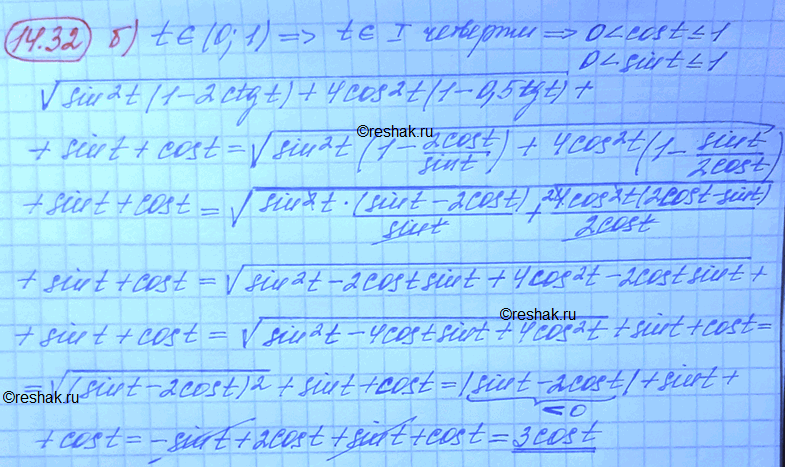 14.32 б) t ∈ (0; 1) => t ∈ I четверти => 0 < cost ≤ 1
0 < sint ≤ 1
√(sin²t (1 - 2ctgt) + 4cos²t (1 - 0,5tgt)) +
+ sint + cost = √(sin²t (1 - 2cost/sint) + 4cos²t (1 - sint/2cost))
reshak.ru
+ sint + cost = √(sin²t · (sint - 2cost)/sint + ²4cos²t (2cost - sint)/2cost)
+ sint + cost = √(sin²t - 2cost sint + 4cos²t - 2cost sint) +
reshak.ru
+ sint + cost = √(sin²t - 4cost sint + 4cos²t) + sint + cost =
= √((sint - 2cost)²) + sint + cost = |sint - 2cost| + sint +
reshak.ru
< 0
+ cost = -sint + 2cost + sint + cost = 3cost